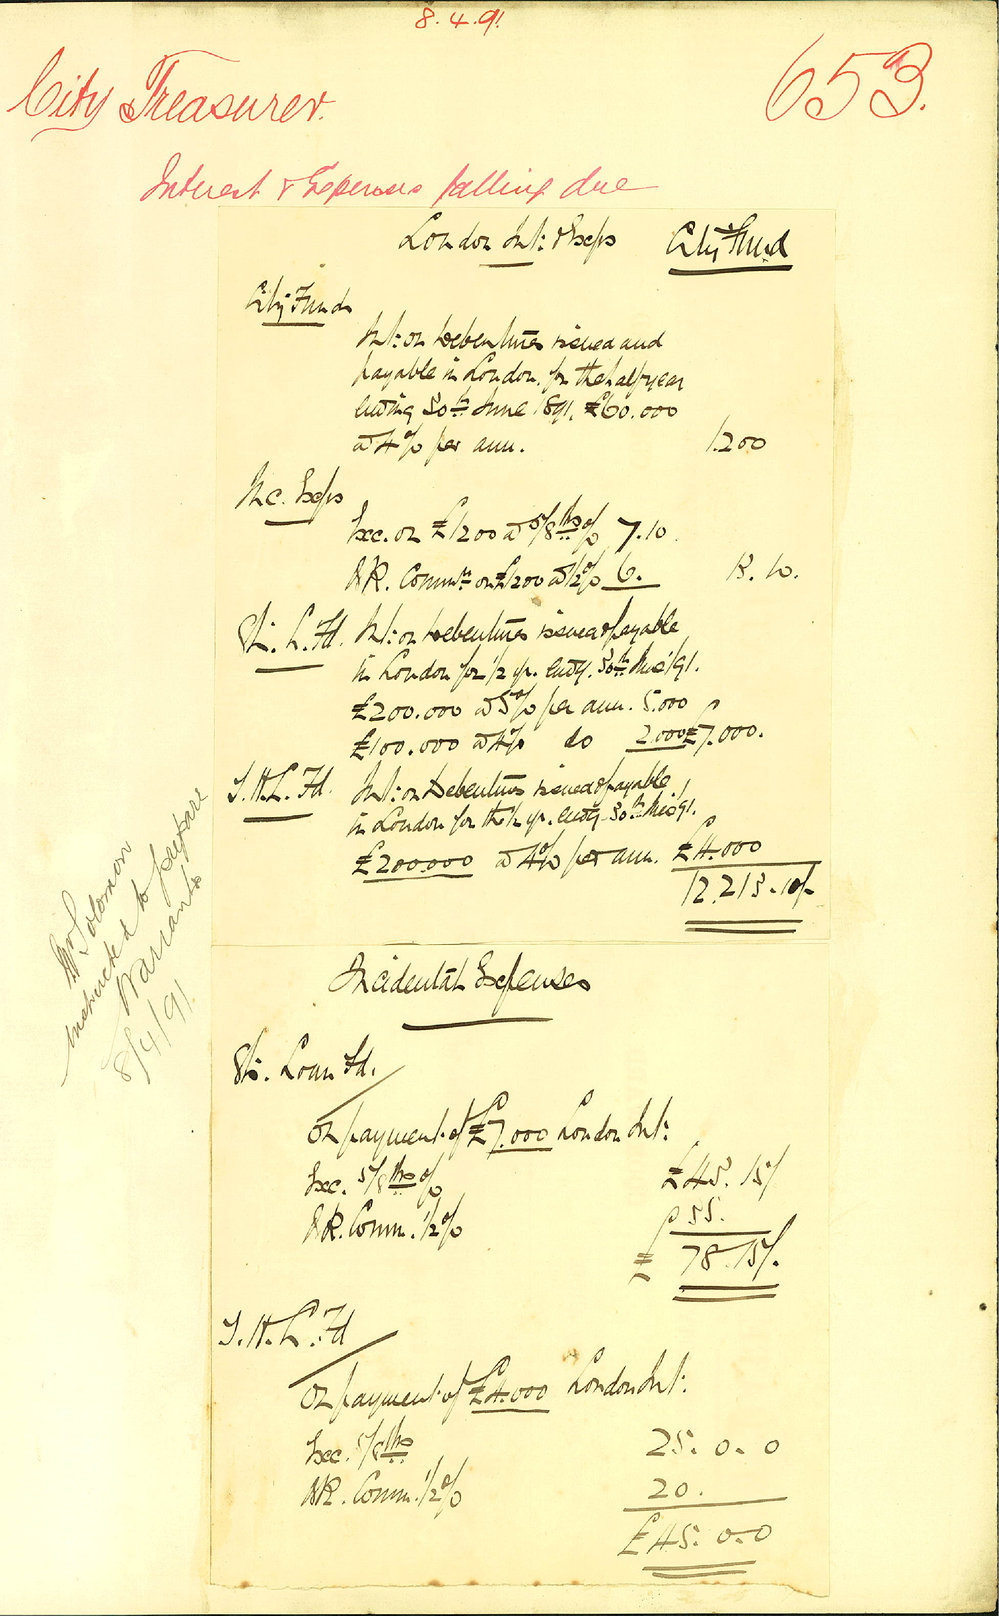 8.4.91
City Treasurer.
653.
Interest & Expenses falling due
London Int: & Exps City Fund
City Fund
Int: on Debentures issued and
payable in London for the half year
ending 30th June 1891. £60.000
at 4% per ann. 1.200
Inc. Exps
Exc. on £1200 at 5/8ths % 7.10.
Commn on £1200 at 1/2% 6. 13.10.
St. L. Fd. Int: on Debentures issued & payable
in London for 1/2 yr. endg. 30th
£200.000 at 5% per ann. 5.000
£100.000 at 4% do 2.000 £7.000.
T.H.L. Fd. Int: on Debentures issued & payable
in London for the 1/2 yr. endg 30th
£200.000 at 4% per ann. £4.000
12.213.10/-
Mr Solomon
instructed to prepare
Warrants
8/4/91
Incidental Expenses
St. Loan Fd.
On payment of £7.000 London Int:
Exc. 5/8ths %
£43.15/
Comm. 1/2%
35.
£ 78.15/.
T.H.L. Fd
On payment of £4.000 London Int:
Exc. 5/8ths 25.0.0
Comm. 1/2% 20.
£45.0.0